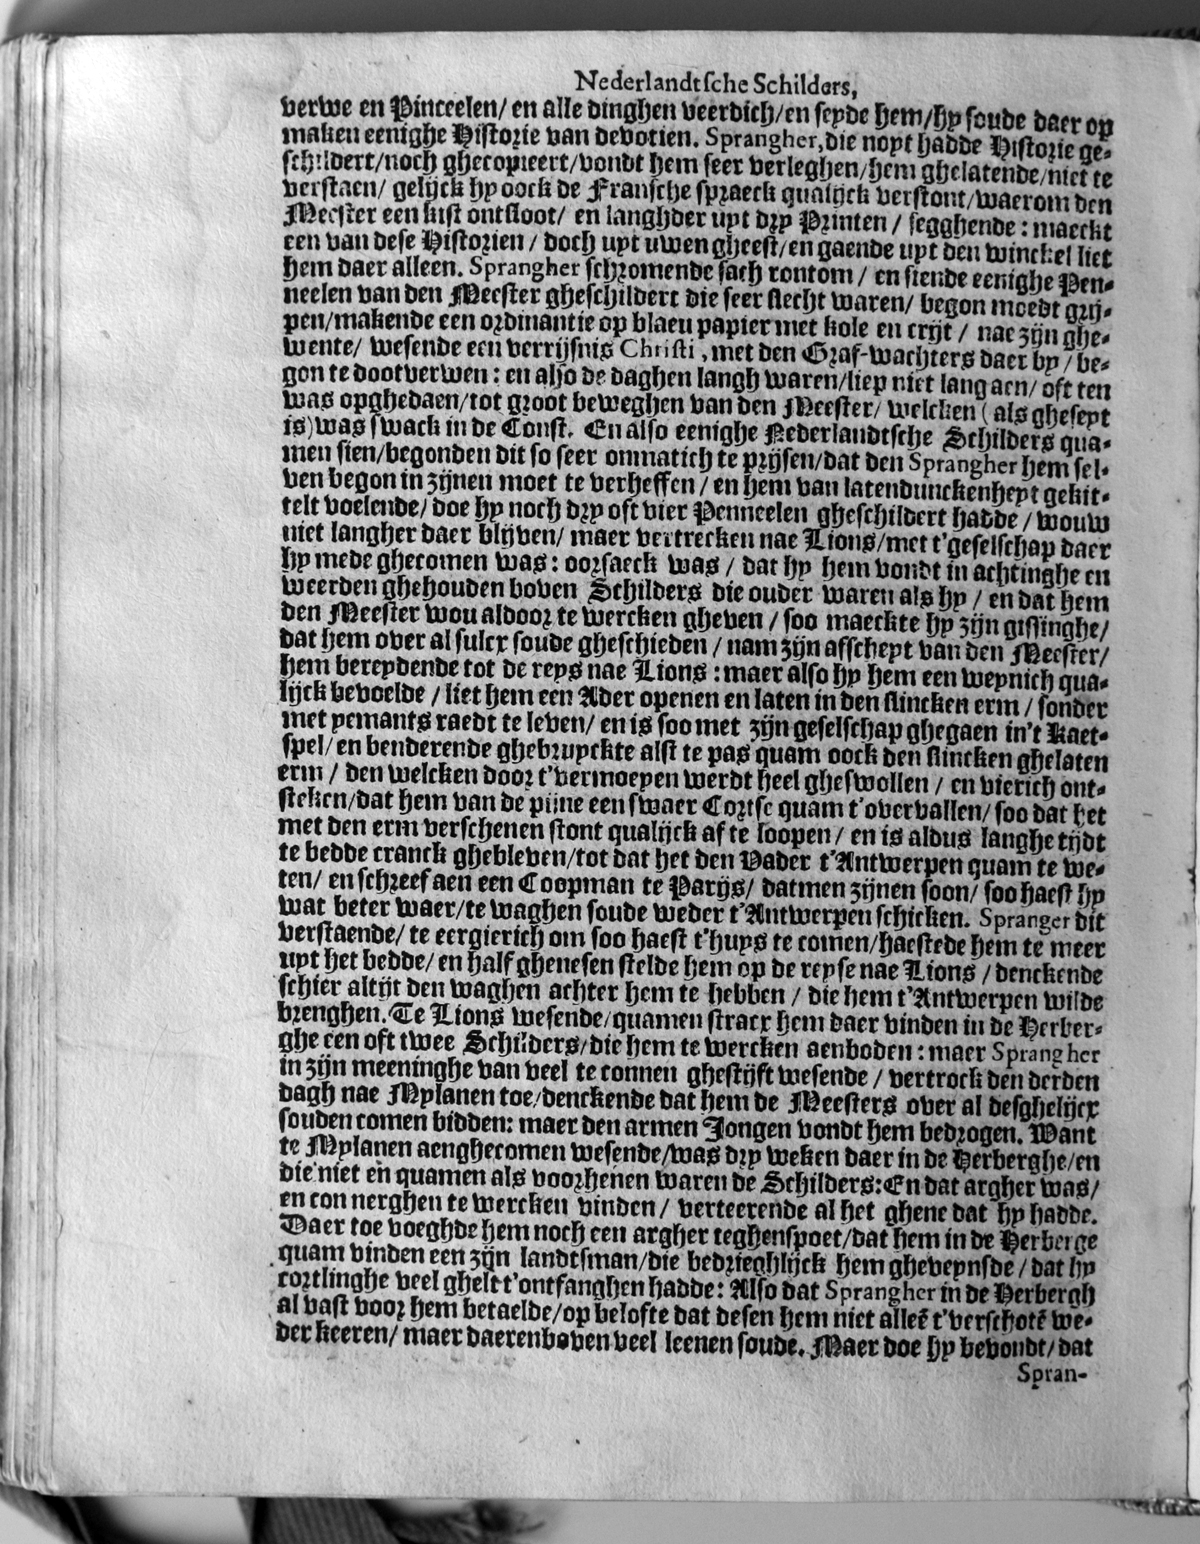 Nederlandtsche Schilders,
verwe en Pinceelen/ en alle dinghen veerdich/en seyde hem/hy soude daer op
maken eenighe Historie van devotien. Sprangher, die noyt hadde Historie ge-
schildert/noch ghecopieert/vondt hem seer verleghen/hem ghelatende/niet te
verstaen/ gelijck hy oock de Fransche spraeck qualijck verstont/waerom den
Meester een kist ontsloot/ en langhder uyt dry Printen / segghende : maeckt
een van dese Historien / doch uyt uwen gheest/en gaende uyt den winckel liet
hem daer alleen. Sprangher schromende sach rontom / en siende eenighe Pen-
neelen van den Meester gheschildert die seer slecht waren/ begon moedt grij-
pen/makende een ordinantie op blaeu papier met kole en crijt / nae zijn ghe-
wente/ wesende een verrijsnis Christi, met den Graf-wachters daer by / be-
gon te dootverwen : en also de daghen langh waren/liep niet lang aen/ oft ten
was opghedaen/tot groot beweghen van den Meester/ welcken (als gheseyt
is) was swack in de Const. En also eenighe Nederlandtsche Schilders qua-
men sien/begonden dit so seer onmatich te prijsen/dat den Sprangher hem sel-
ven begon in zijnen moet te verheffen / en hem van latendunckenheyt gekit-
telt voelende/ doe hy noch dry oft vier Penneelen gheschildert hadde / wouw
niet langher daer blijven/ maer vertrecken nae Lions/met t'geselschap daer
hy mede ghecomen was : oorsaeck was / dat hy hem vondt in achtinghe en
weerden ghehouden boven Schilders die ouder waren als hy / en dat hem
den Meester wou aldoor te wercken gheven / soo maeckte hy zijn gissinghe/
dat hem over al sulcx soude gheschieden / nam zijn afscheyt van den Meester/
hem bereydende tot de reys nae Lions : maer also hy hem een weynich qua-
lijck bevoelde / liet hem een Ader openen en laten in den slincken erm / sonder
met yemants raedt te leven/ en is soo met zijn geselschap ghegaen in't Kaet-
spel/ en benderende ghebruyckte alst te pas quam oock den slincken ghelaten
erm / den welcken door t'vermoeyen werdt heel gheswollen / en vierich ont-
steken/dat hem van de pijne een swaer Cortse quam t'overvallen/ soo dat het
met den erm verschenen stont qualijck af te loopen/ en is aldus langhe tijdt
te bedde cranck ghebleven/tot dat het den Vader t'Antwerpen quam te we-
ten/ en schreef aen een Coopman te Parijs/ datmen zijnen soon/ soo haest hy
wat beter waer/te waghen soude weder t'Antwerpen schicken. Spranger dit
verstaende/ te eergierich om soo haest t'huys te comen/haestede hem te meer
uyt het bedde/ en half ghenesen stelde hem op de reyse nae Lions / denckende
schier altijt den waghen achter hem te hebben / die hem t'Antwerpen wilde
brenghen. Te Lions wesende/quamen stracx hem daer vinden in de Herber-
ghe een oft twee Schilders/die hem te wercken aenboden : maer Sprangher
in zijn meeninghe van veel te connen ghestijft wesende / vertrock den derden
dagh nae Mylanen toe/denckende dat hem de Meesters over al desghelijcx
souden comen bidden: maer den armen Jongen vondt hem bedrogen. Want
te Mylanen aenghecomen wesende/was dry weken daer in de Herberghe/en
die niet en quamen als voorhenen waren de Schilders: En dat argher was/
en con nerghen te wercken vinden / verteerende al het ghene dat hy hadde.
Daer toe voeghde hem noch een argher teghenspoet/dat hem in de Herberge
quam vinden een zijn landtsman/die bedrieghlijck hem gheveynsde / dat hy
cortlinghe veel ghelt t'ontfanghen hadde: Also dat Sprangher in de Herbergh
al vast voor hem betaelde/op belofte dat desen hem niet alleē t'verschotē we-
der keeren/ maer daerenboven veel leenen soude. Maer doe hy bevondt/dat
Spran-